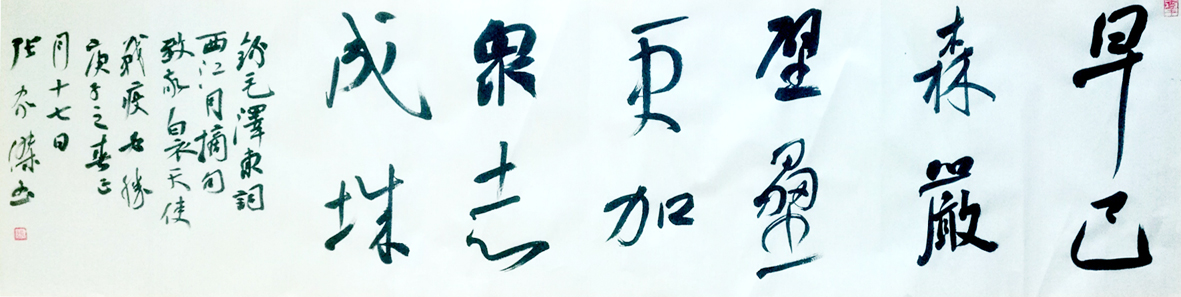 早已
森嚴
壁壘
更加
眾志
成城
毛澤東詞
西江月摘句
致敬白衣天使
戰疫必勝
庚子之春正
月十七日
张家傑书